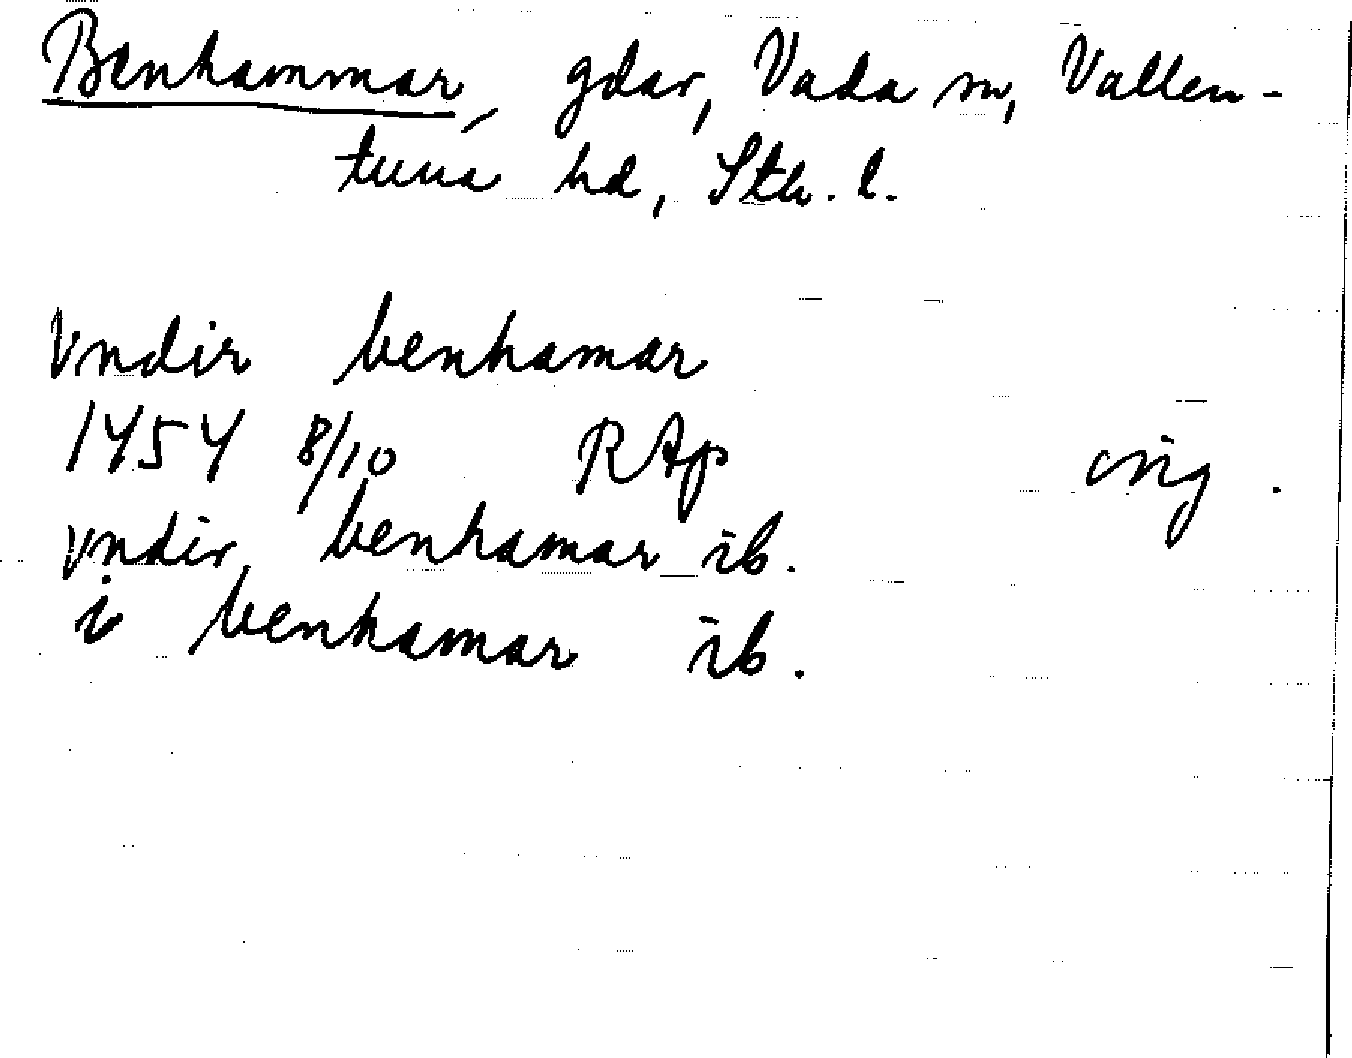 Benhammar, gdar, Vada sn, Vallen-
tuna hd, Sth. l.
vndir benhamar
1454 8/10 RAp orig.
vndir benhamar ib.
i benhamar ib.